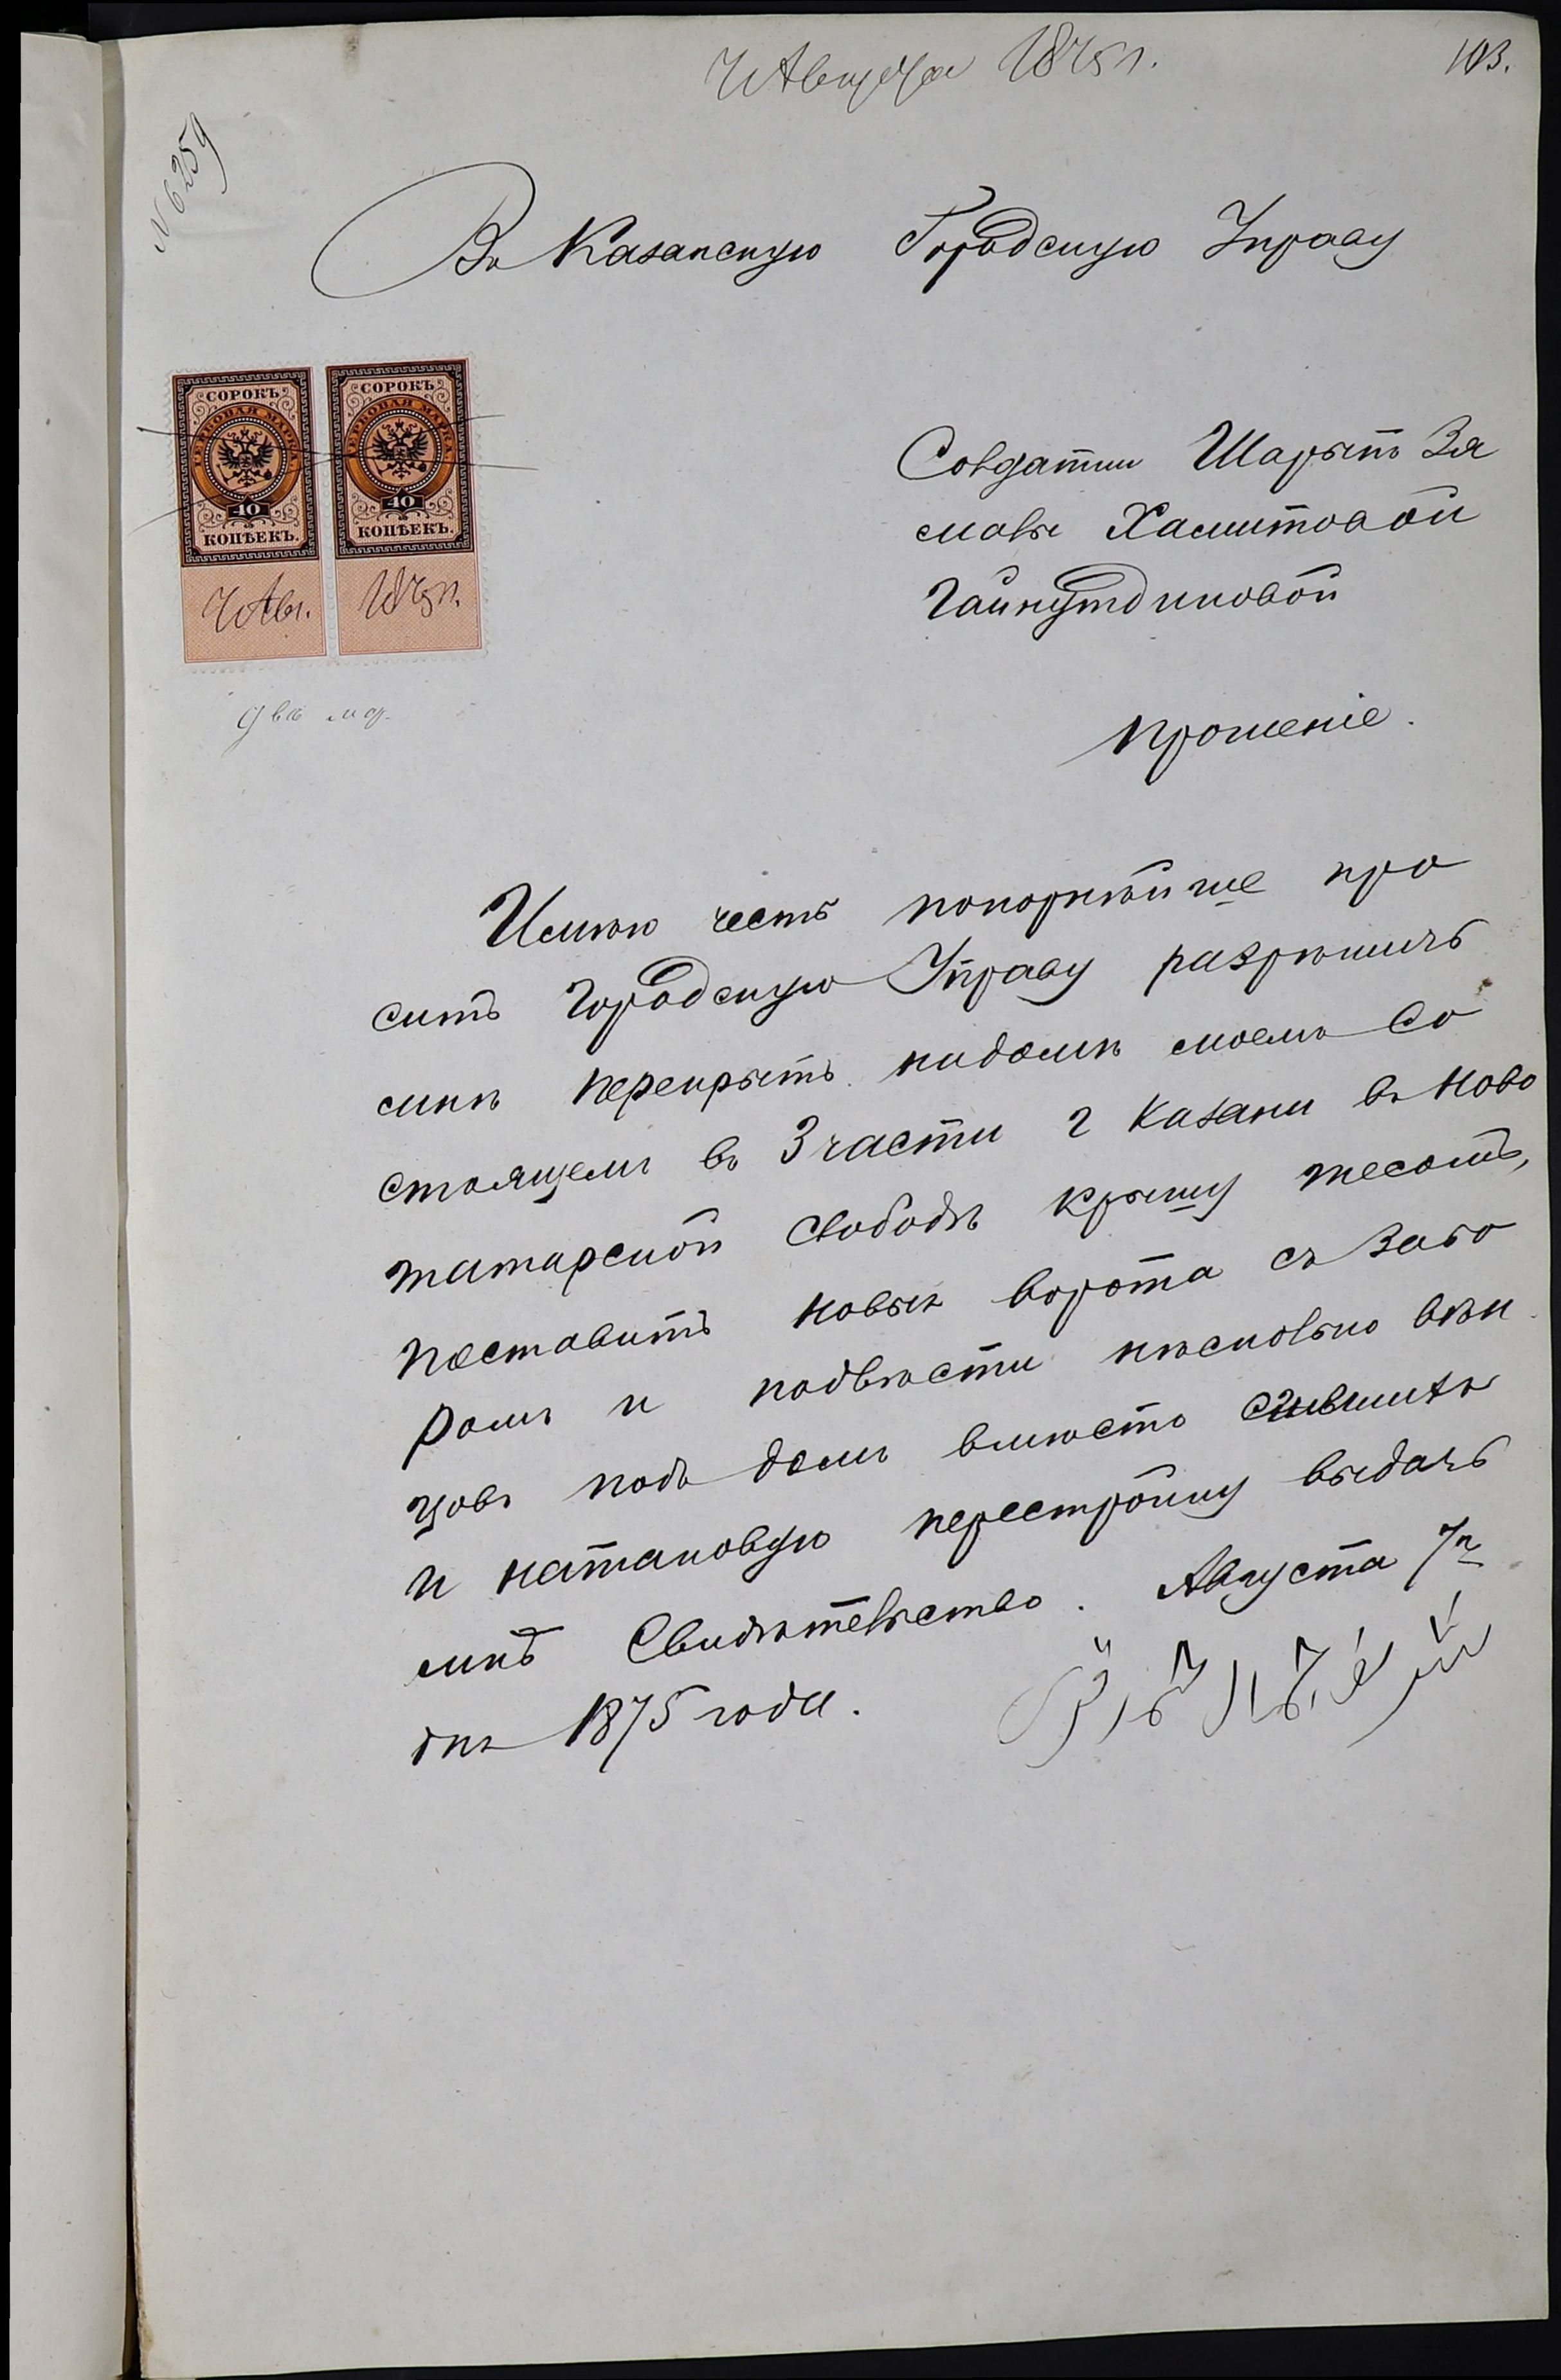 7 Августа 1875 г.
103.
№ 6259
Въ Казанскую Городскую Управу
СОРОКЪ
ГЕРБОВАЯ МАРКА
40
КОПѢЕКЪ.
7 Авг.
СОРОКЪ
ГЕРБОВАЯ МАРКА
40
КОПѢЕКЪ.
1875 г.
двѣ мар.
Солдатки Шарыпъ Зя
малы Хамитовой
Гайнутдиновой
Прошеніе.
Имѣю честь покорнѣйше про
сить Городскую Управу разрѣшить
мнѣ перекрыть надомѣ моемъ Со
стоящемъ въ 3 части г Казани въ Ново
татарской слободѣ крышу тесомъ,
поставить новыя ворота съ Забо
ромъ и подвѣсти нѣсколько вѣн
цовъ подъ домъ вмѣсто сгнившихъ
и натаковую перестройку выдать
мнѣ Свидѣтельство. Августа 7го
дня 1875 года.